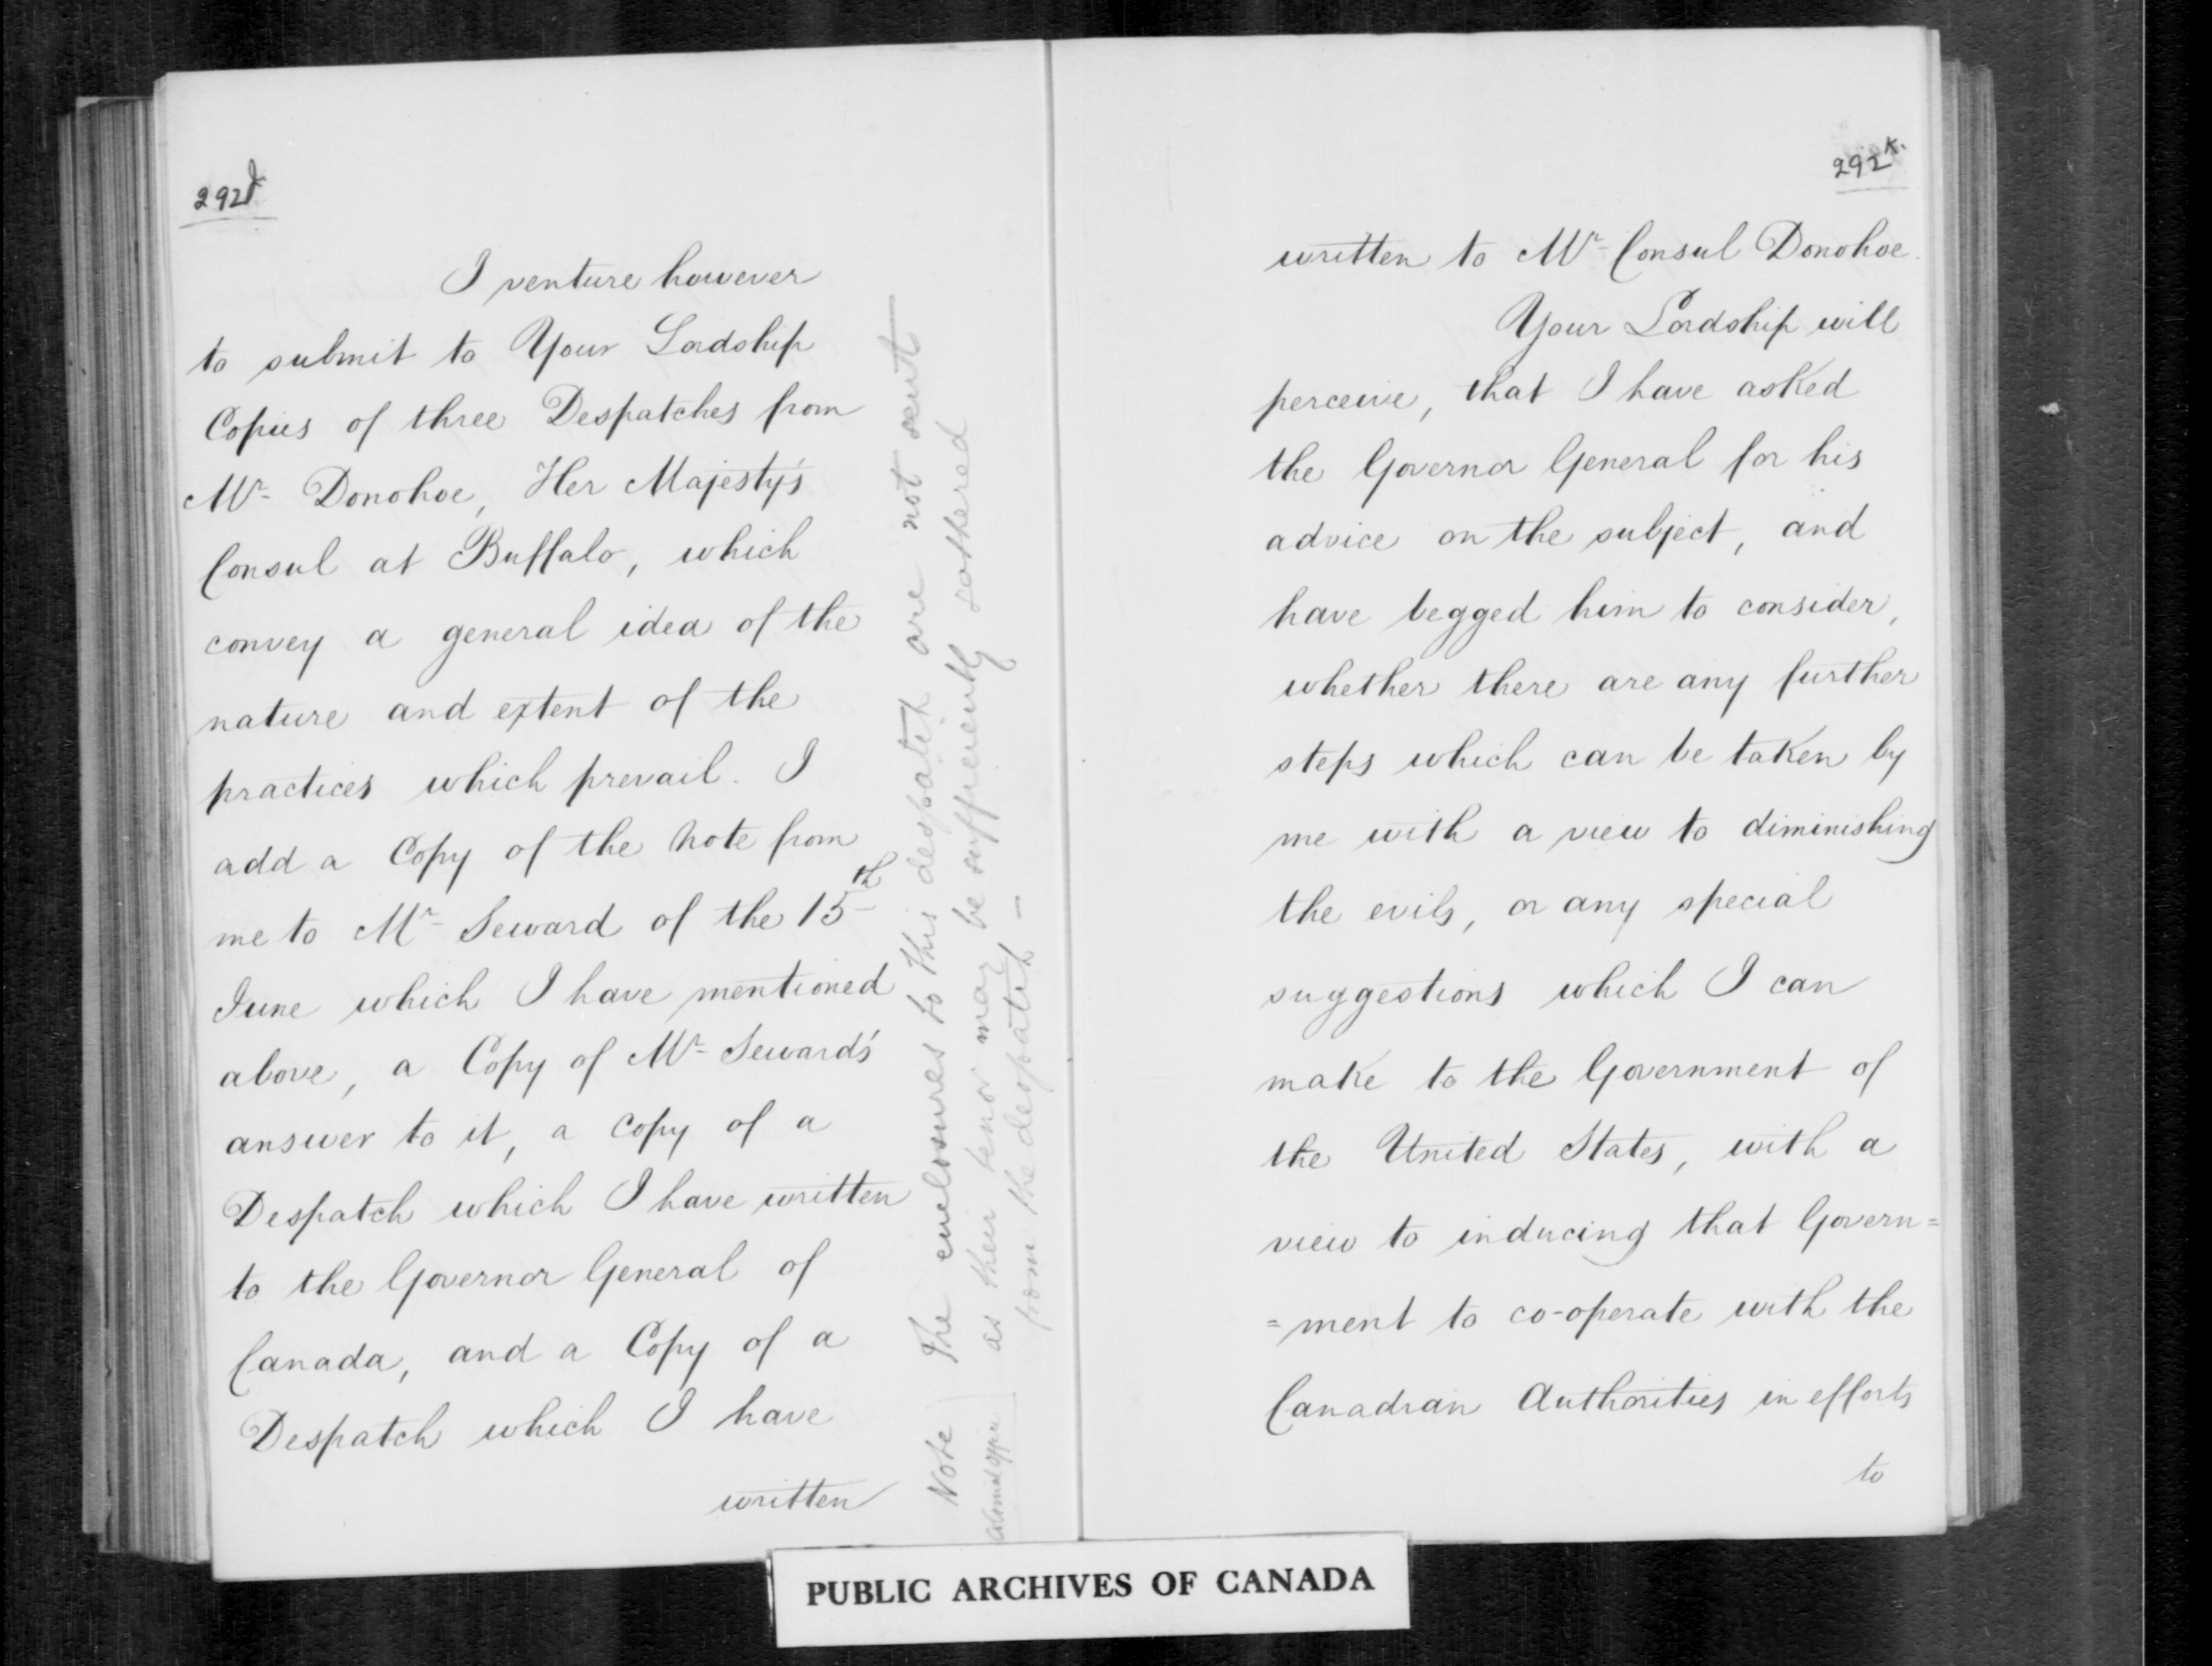 292j
I venture however
to submit to Your Lordship
Copies of three Despatches from
Mr. Donohoe, Her Majesty's
Consul at Buffalo, which
convey a general idea of the
nature and extent of the
practices which prevail. I
add a Copy of the Note from
me to Mr. Seward of the 15th
June which I have mentioned
above, a Copy of Mr. Seward's
answer to it, a Copy of a
Despatch which I have written
to the Governor General of
Canada, and a Copy of a
Despatch which I have
written
Note) The enclosures to this despatch are not sent
as their tenor may be sufficiently gathered
from the despatch —
292k.
written to Mr. Consul Donohoe.
Your Lordship will
perceive, that I have asked
the Governor General for his
advice on the subject, and
have begged him to consider,
whether there are any further
steps which can be taken by
me with a view to diminishing
the evils, or any special
suggestions which I can
make to the Government of
the United States, with a
view to inducing that Govern=
=ment to co-operate with the
Canadian Authorities in efforts
to
PUBLIC ARCHIVES OF CANADA